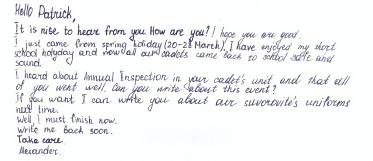 Hello Patrick,
It is nise to hear from you. How are you? I hope you are good.
I just came from spring holiday (20-28 March). I have enjoyed my short
school holyday and now all our cadets came back to school safe and
sound.
I heard about Annual Inspection in your cadet's unit and that all
of you went well. Can you write about this event?
If you want I can write you about our suvorovite's uniforms
next time.
Well, I must finish now.
Write me back soon.
Take care.
Alexander.